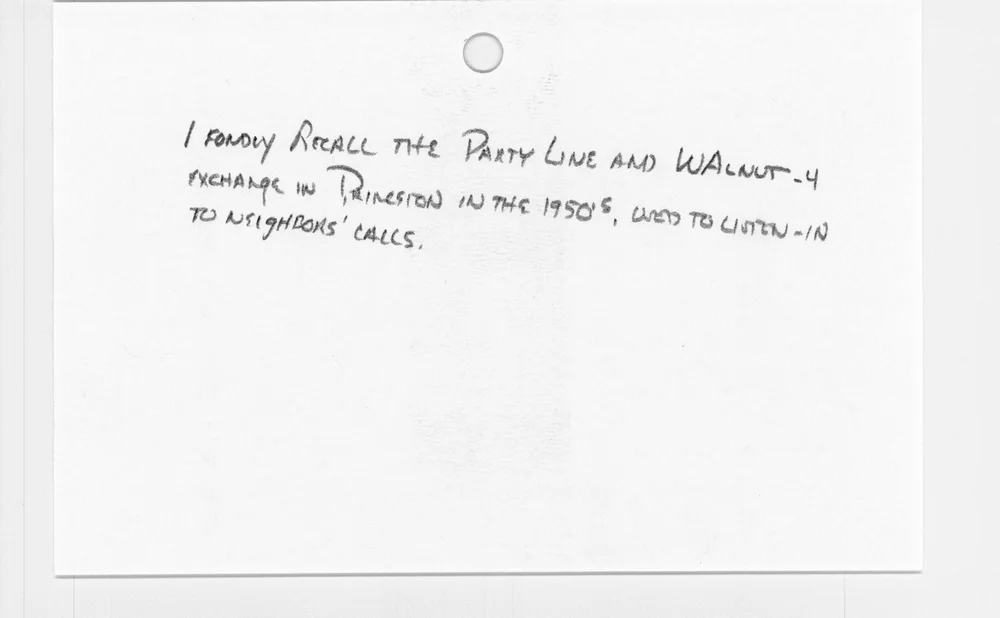 I FONDLY RECALL THE PARTY LINE AND WALNUT-4
EXCHANGE IN PRINCETON IN THE 1950'S, USED TO LISTEN-IN
TO NEIGHBORS' CALLS.